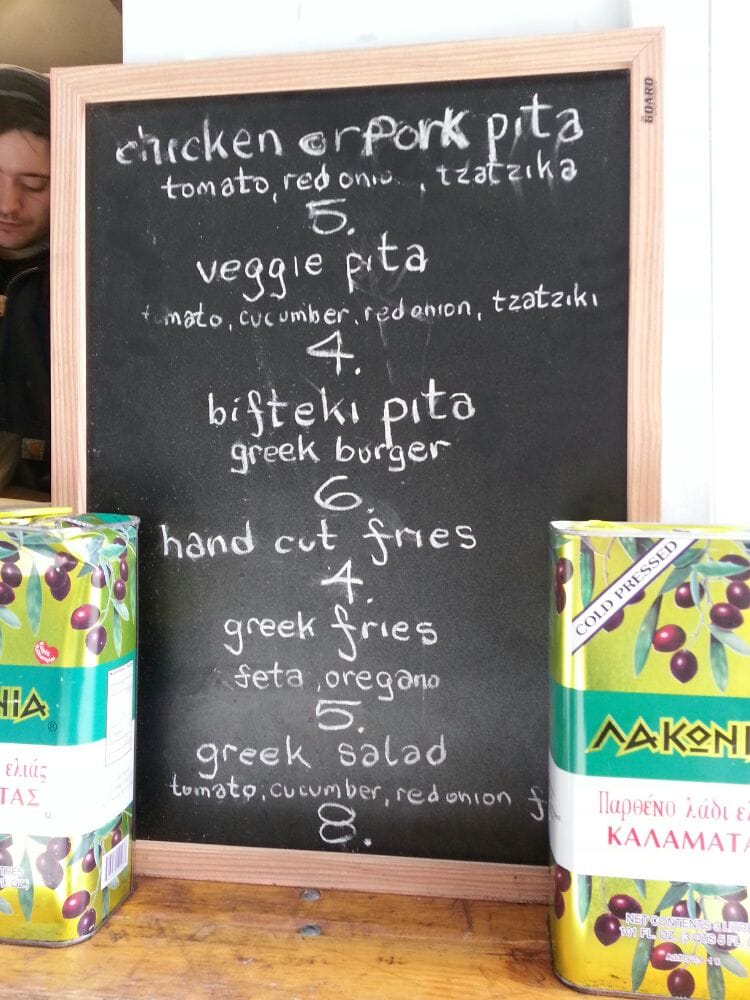 BOARD
chicken or pork pita
tomato, red onio , tzatzika
5.
veggie pita
tomato, cucumber, red onion, tzatziki
4.
bifteki pita
greek burger
6.
hand cut fries
4.
greek fries
feta, oregano
5.
greek salad
tomato, cucumber, red onion f
8.
ΝΙΑ ®
ελιάς
ΤΑΣ
COLD PRESSED
ΛΑΚΩΝΙ
Παρθένο λάδι ελ
ΚΑΛΑΜΑΤΑ
NET CONTENTS 3 LITR
101 FL. OZ. (3 QTS 5 FL